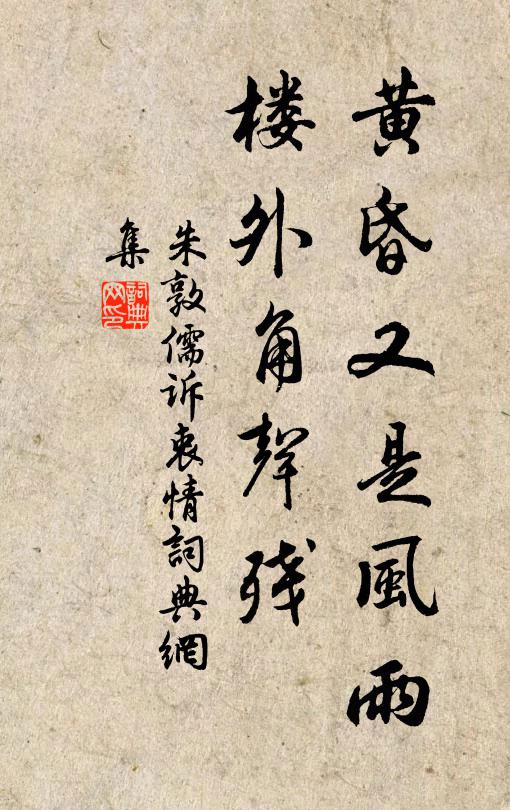 黄昏又是風雨
楼外角聲残
朱敦儒诉衷情詞典網
集
詞典
网印